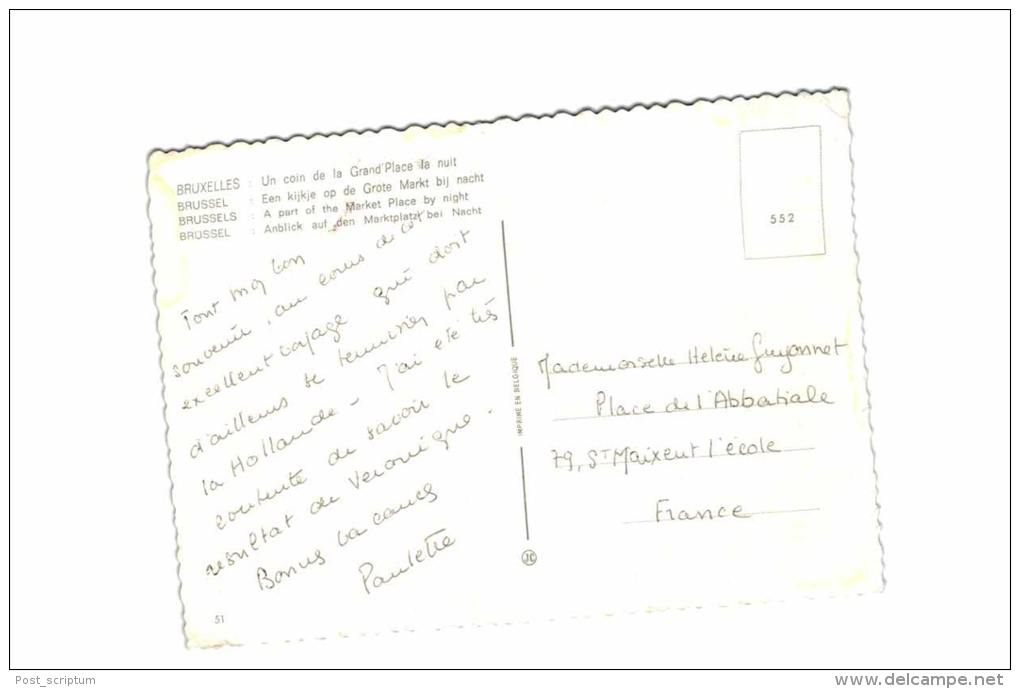 BRUXELLES : Un coin de la Grand'Place la nuit
BRUSSEL : Een kijkje op de Grote Markt bij nacht
BRUSSELS : A part of the Market Place by night
BRÜSSEL : Anblick auf den Marktplatz bei Nacht
Tout mon bon
souvenir, au cours de cet
excellent voyage qui doit
d'ailleurs se terminer par
la Hollande - J'ai été très
contente de savoir le
résultat de Véronique.
Bonnes vacances
Paulette
51
IMPRIME EN BELGIQUE
JC
552
Mademoiselle Hélène Guyonnet
Place de l'Abbatiale
79, ST Maixent l'école
France
Post_scriptum
www.delcampe.net